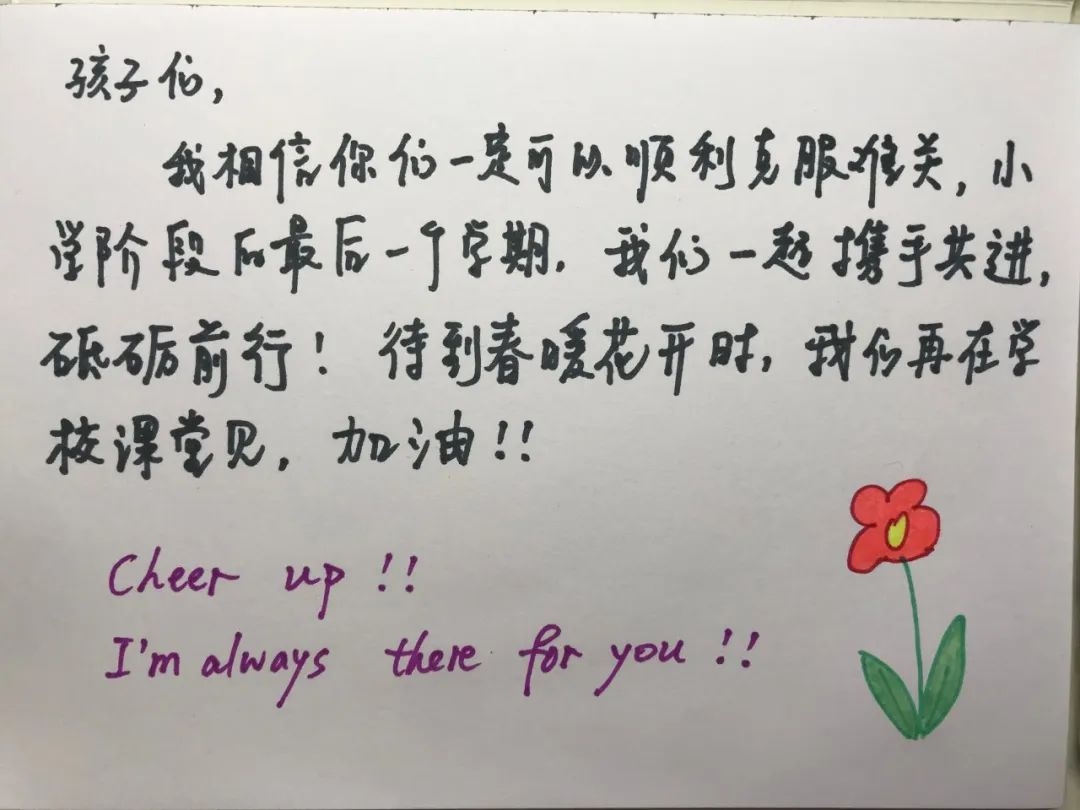 孩子们，
我相信你们一定可以顺利克服难关，小
学阶段的最后一个学期，我们一起携手共进，
砥砺前行！待到春暖花开时，我们再在学
校课堂见，加油！！
Cheer up !!
I'm always there for you !!